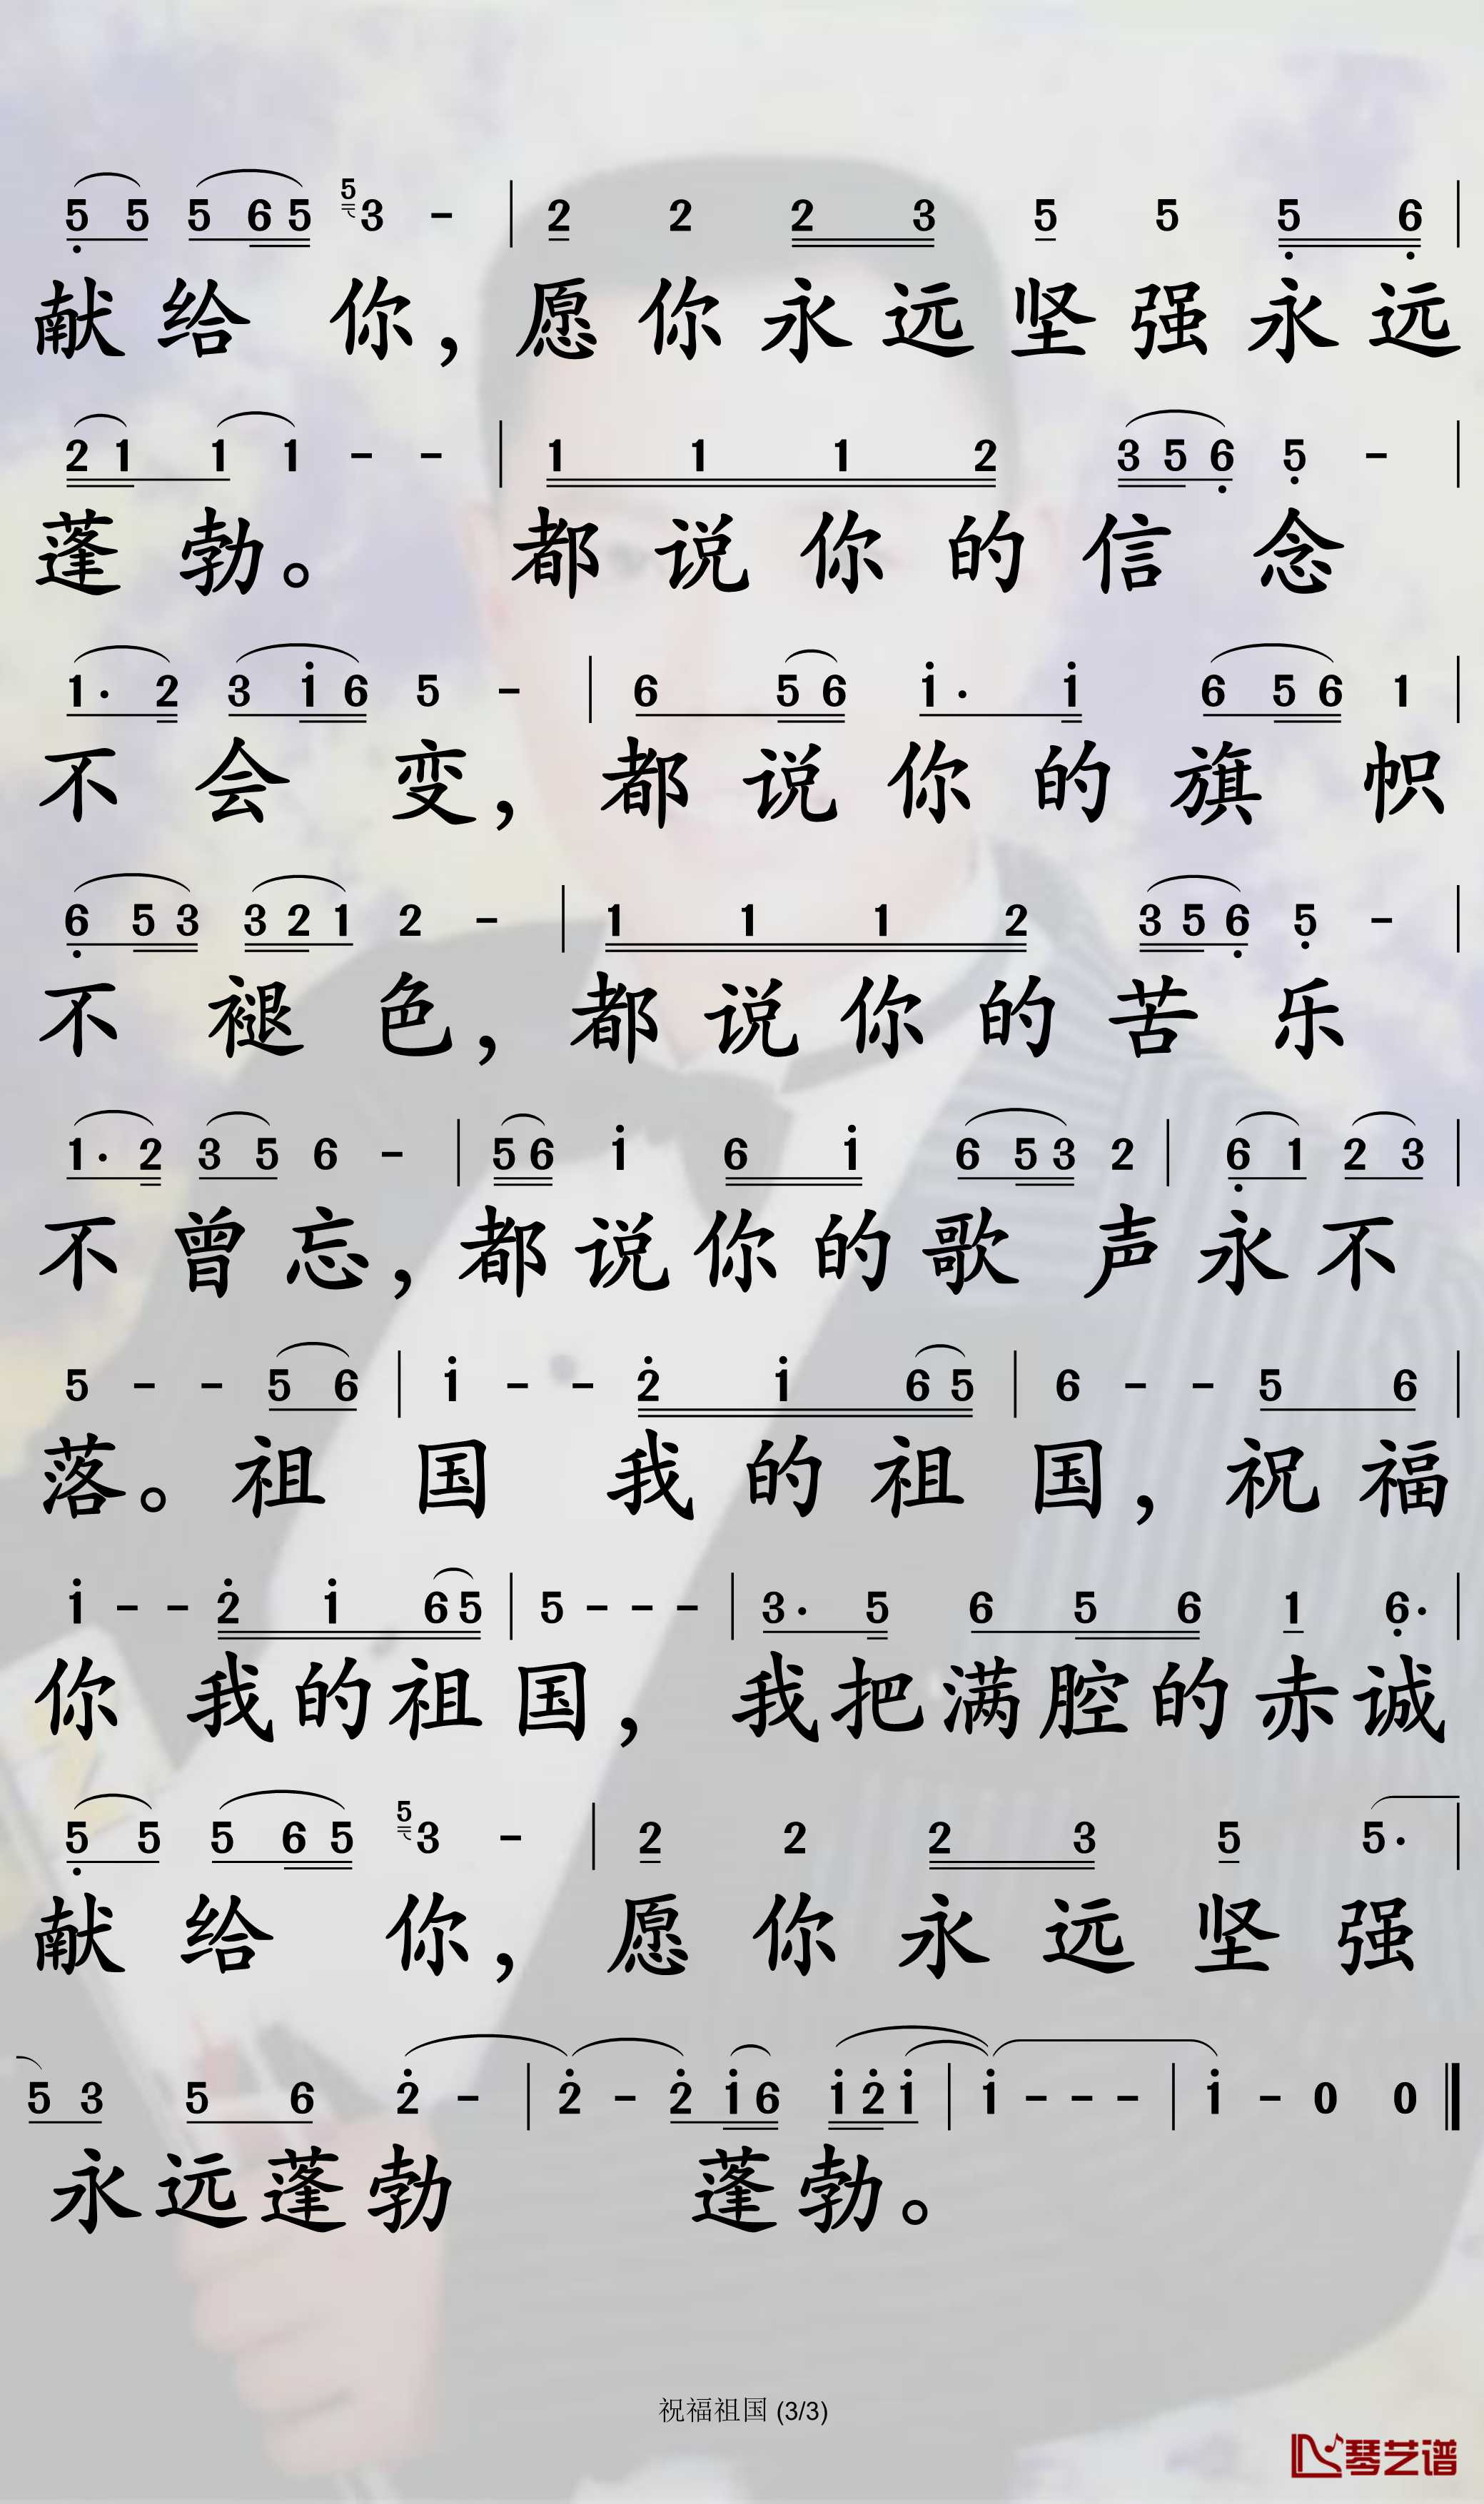 5 5 5 6 5 5 3 - | 2 2 2 3 5 5 5 6 |
献给你，愿你永远坚强永远
2 1 1 1 - - | 1 1 1 2 3 5 6 5 - |
蓬勃。都说你的信念
1· 2 3 i 6 5 - | 6 5 6 i· i 6 5 6 1 |
不会变，都说你的旗帜
6 5 3 3 2 1 2 - | 1 1 1 2 3 5 6 5 - |
不褪色，都说你的苦乐
1· 2 3 5 6 - | 5 6 i 6 i 6 5 3 2 | 6 1 2 3 |
不曾忘，都说你的歌声永不
5 - - 5 6 | i - - 2 i 6 5 | 6 - - 5 6 |
落。祖国我的祖国，祝福
i - - 2 i 6 5 | 5 - - - | 3· 5 6 5 6 1 6· |
你我的祖国，我把满腔的赤诚
5 5 5 6 5 5 3 - | 2 2 2 3 5 5· |
献给你，愿你永远坚强
5 3 5 6 2 - | 2 - 2 i 6 i 2 i | i - - - | i - 0 0 ‖
永远蓬勃蓬勃。
祝福祖国 (3/3)
琴艺谱